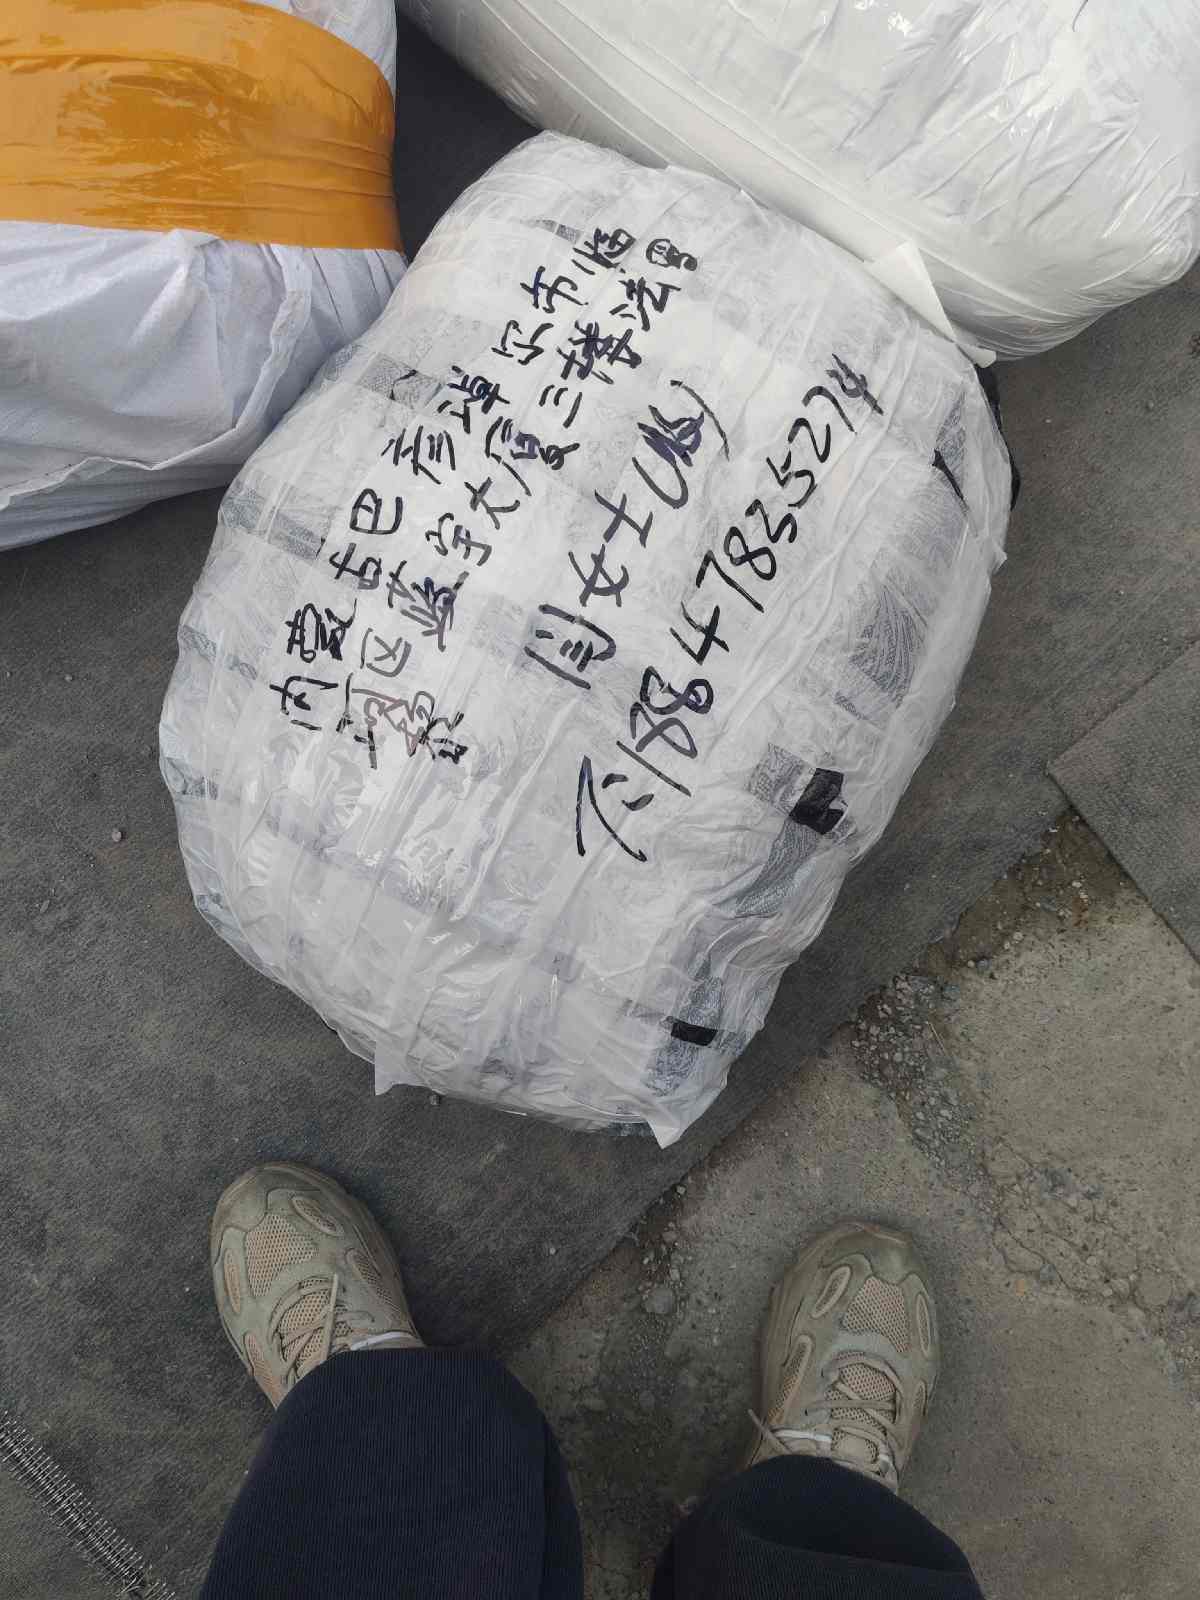 内蒙古巴彦淖尔市临
河区蓝宇大厦三楼法
闫女士(收)
18847835274